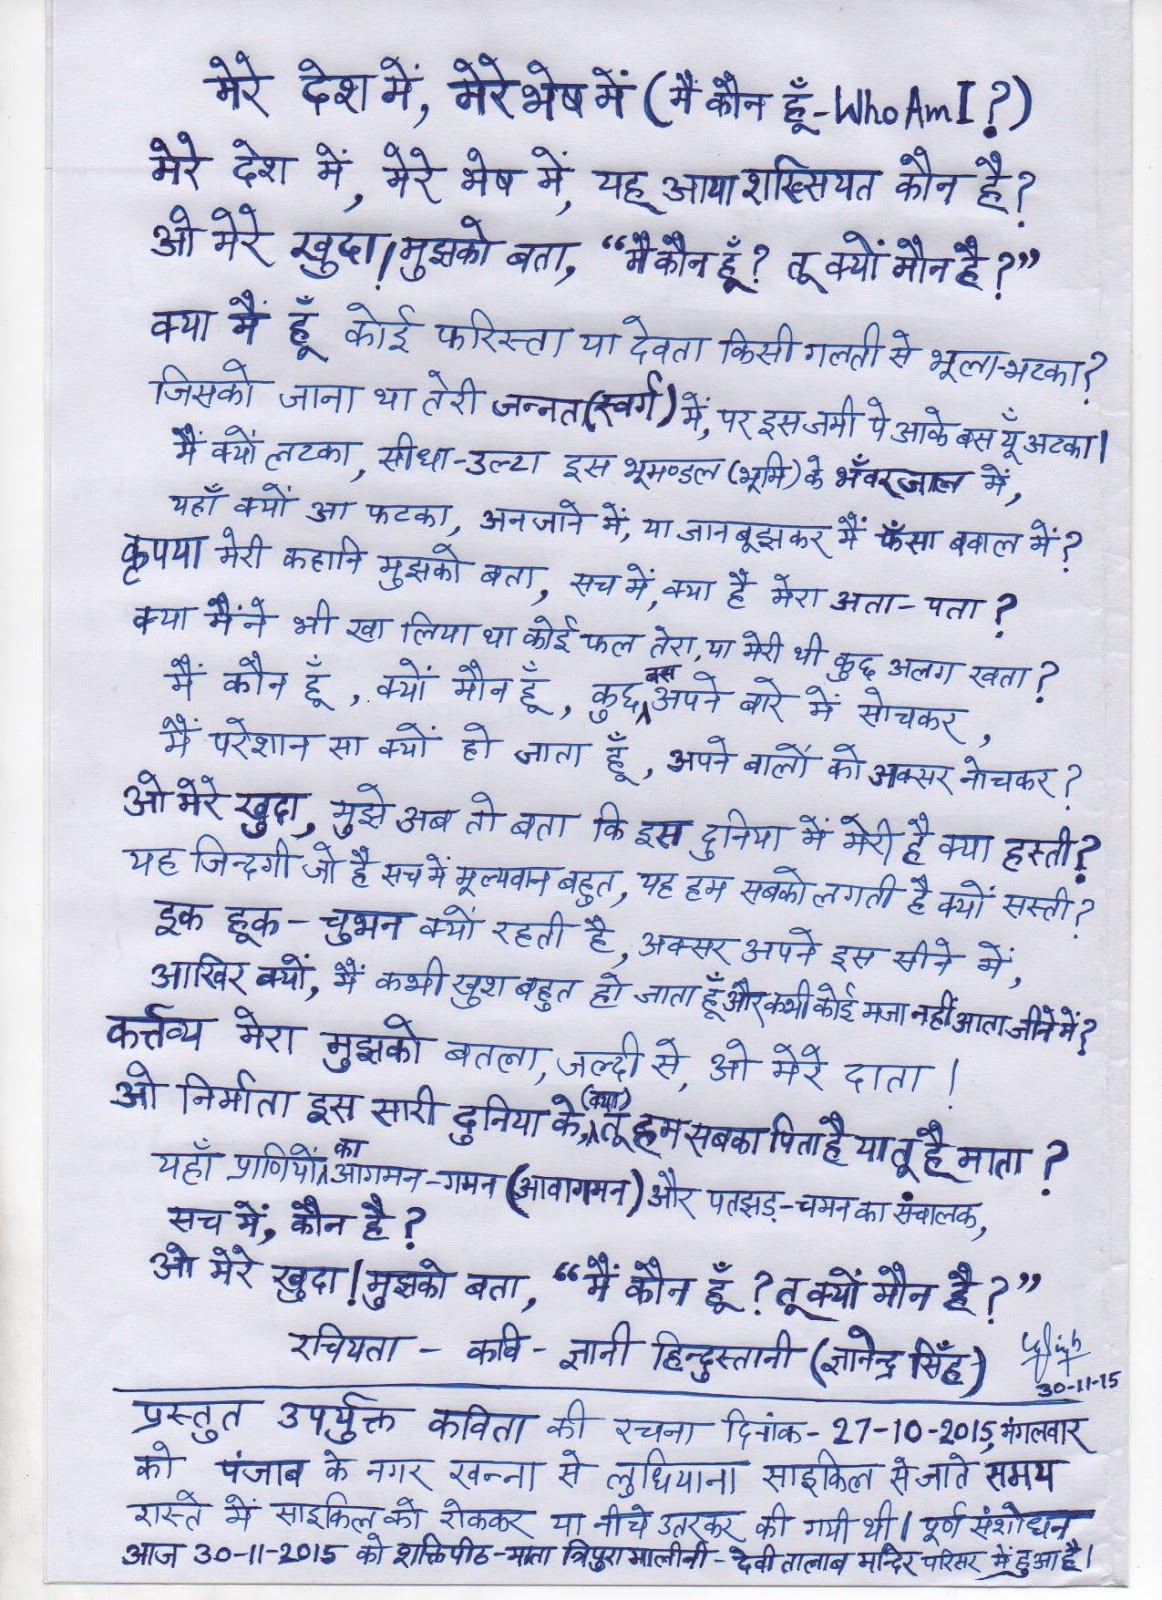 मेरे देश में, मेरे भेष में (मैं कौन हूँ - Who Am I ?)
मेरे देश में, मेरे भेष में, यह आया शख्सियत कौन है?
ओ मेरे खुदा! मुझको बता, “मैं कौन हूँ? तू क्यों मौन है?”
क्या मैं हूँ कोई फरिस्ता या देवता किसी गलती से भूला-भटका?
जिसको जाना था तेरी जन्नत (स्वर्ग) में, पर इस जमी पे आके बस यूँ अटका।
मैं क्यों लटका, सीधा-उल्टा इस भूमण्डल (भूमि) के भँवरजाल में,
यहाँ क्यों आ फटका, अनजाने में, या जानबूझकर मैं फँसा बवाल में?
कृपया मेरी कहानि मुझको बता, सच में, क्या है मेरा अता-पता?
क्या मैंने भी खा लिया था कोई फल तेरा, या मेरी थी कुछ अलग खता?
मैं कौन हूँ, क्यों मौन हूँ, कुछ बस अपने बारे में सोचकर,
मैं परेशान सा क्यों हो जाता हूँ, अपने बालों को अक्सर नोचकर?
ओ मेरे खुदा, मुझे अब तो बता कि इस दुनिया में मेरी है क्या हस्ती?
यह जिन्दगी जो है सच में मूल्यवान बहुत, यह हम सबको लगती है क्यों सस्ती?
इक हूक-चुभन क्यों रहती है, अक्सर अपने इस सीने में,
आखिर क्यों, मैं कभी खुश बहुत हो जाता हूँ और कभी कोई मजा नहीं आता जीने में?
कर्त्तव्य मेरा मुझको बतला, जल्दी से, ओ मेरे दाता!
ओ निर्माता इस सारी दुनिया के, (क्या) तू हम सबका पिता है या तू है माता?
यहाँ प्राणियों का आगमन-गमन (आवागमन) और पतझड़-चमन का संचालक,
सच में, कौन है?
ओ मेरे खुदा! मुझको बता, “मैं कौन हूँ? तू क्यों मौन है?”
रचियता - कवि - ज्ञानी हिन्दुस्तानी (ज्ञानेन्द्र सिँह)
30-11-15
प्रस्तुत उपर्युक्त कविता की रचना दिनांक - 27-10-2015, मंगलवार
को पंजाब के नगर खन्ना से लुधियाना साइकिल से जाते समय
रास्ते में साइकिल को रोककर या नीचे उतरकर की गयी थी। पूर्ण संशोधन
आज 30-11-2015 को शक्तिपीठ-माता त्रिपुरामालीनी-देवी तालाब मन्दिर परिसर में हुआ है।